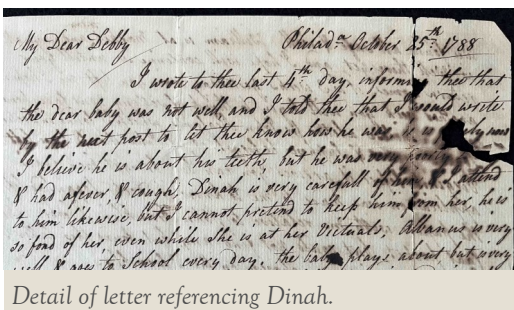 My Dear Debby
Philad.a October 25th 1788
I wrote to thee last 4th day informing thee that
the dear baby was not well, and I told thee that I would write
by the next post to let thee know how he was, is
I believe he is about his teeth, but he was very poorly
& had a fever, & cough, Dinah is very carefull of him, & I attend
to him likewise, but I cannot pretend to keep him from her, he is
so fond of her, even while she is at her Victuals. Albanus is very
well & goes to School every day. the baby plays about but is very
Detail of letter referencing Dinah.